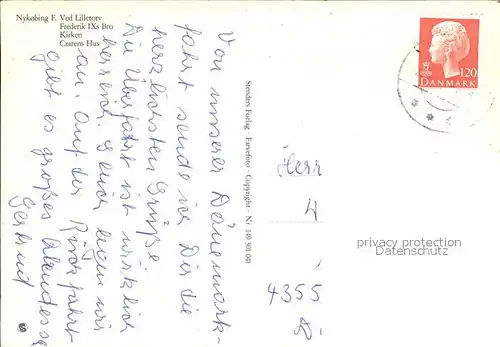 Nykøbing F. Ved Lilletorv
Frederik IXs Bro
Kirken
Czarens Hus
Von unserer Dänemark-
fahrt sende ich Dir die
herzlichsten Grüße.
Die Überfahrt ist wirklich
herrlich. Leider legen wir
an. Auf der Rückfahrt
gibt es großes Abendessen
Gertrud
Stenders Forlag - Farvefoto - Copyright - Nr. 149 301 041
120
DANMARK
Herr
4355
privacy protection
Datenschutz